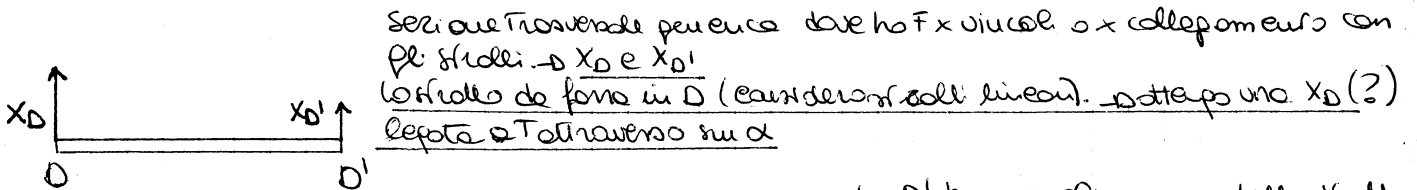 sezione trasversale generica dove ho F x vincoli o x collegamento con
gli stralli. → XD e XD'
Lo strallo dà forza in D (considero stralli lineari). → ottengo una XD (?)
legata a T attraverso sin α
XD
XD'
D
D'